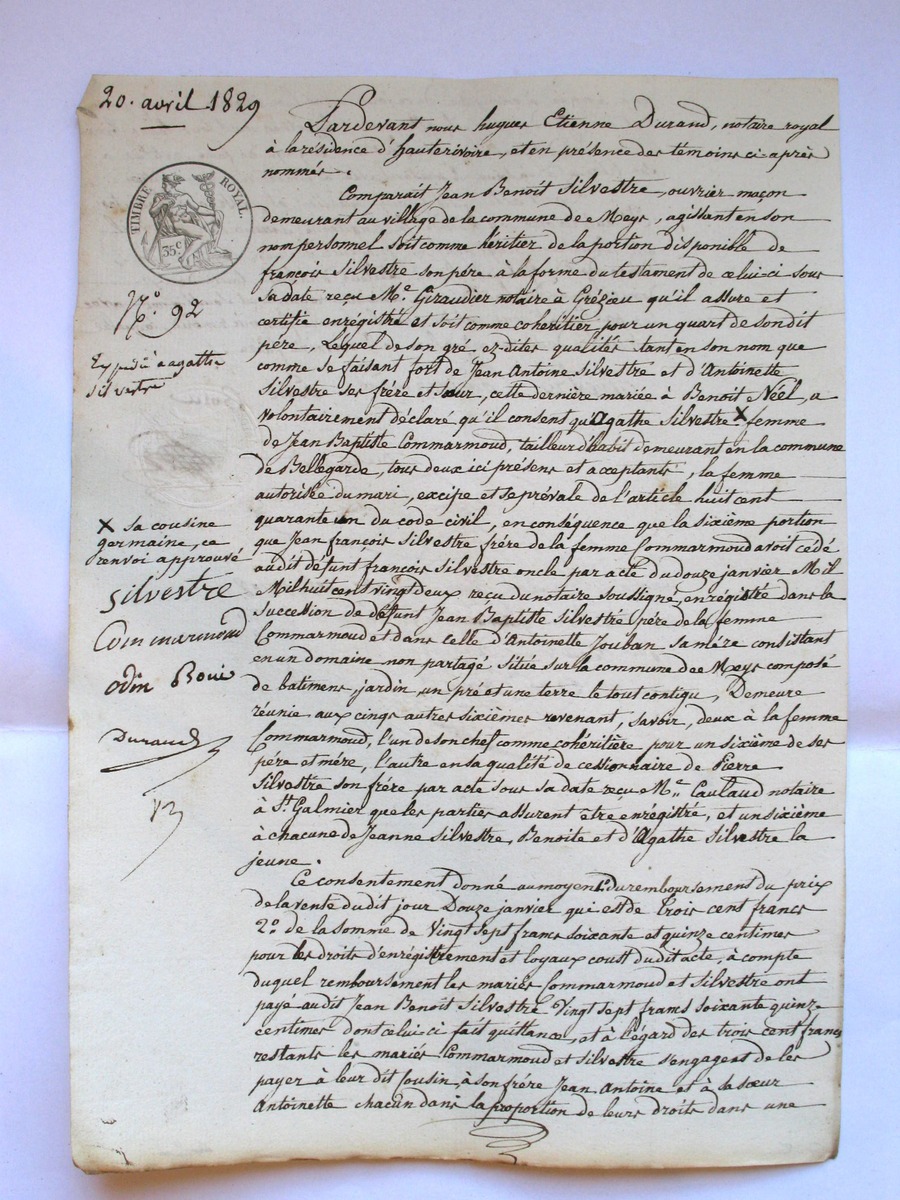 20. avril 1829
TIMBRE ROYAL.
35c
N.º 92
Expédié à agathe
Silvestre
X sa cousine
germaine, ce
renvoi approuvé
Silvestre
Commarmond
odin
Durand
Pardevant nous hugues Etienne Durand, notaire royal
à la résidence d'hauterivoire, et en présence des témoins ci-après
nommés.
Comparait Jean Benoit Silvestre, ouvrier maçon
demeurant au village de la commune de Meys, agissant en son
nom personnel soit comme héritier de la portion disponible de
françois Silvestre son père à la forme du testament de celui-ci sous
sa date reçu Me. Giraudier notaire à Grézieu qu'il assure et
certifie enrégistré et soit comme cohéritier pour un quart de son dit
père, Lequel de son gré ez-dites qualités tant en son nom que
comme se faisant fort de Jean Antoine Silvestre et d'Antoinette
Silvestre ses frère et sœur, cette dernière mariée à Benoit Néel, a
volontairement déclaré qu'il consent qu'Agathe Silvestre X femme
de Jean Baptiste Commarmond, tailleur d'habit demeurant en la commune
de Bellegarde, tous deux ici présens et acceptants, la femme
autorisée du mari, excipe et se prévale de l'article huit cent
quarante un du code civil, en conséquence que la sixième portion
que Jean françois Silvestre frère de la femme Commarmond avoit cédé
audit défunt françois Silvestre oncle par acte du douze janvier Mil
Mil huit cent vingt deux reçu du notaire soussigné, enrégistré dans la
succession de défunt Jean Baptiste Silvestre père de la femme
Commarmond et dans celle d'Antoinette Jouban sa mère consistant
en un domaine non partagé situé sur la commune de Meys composé
de batimens jardin un pré et une terre le tout contigu, Demeure
réunie aux cinq autres sixièmes revenant, savoir, deux à la femme
Commarmond, l'un de son chef comme cohéritière pour un sixième de ses
père et mère, l'autre en sa qualité de cessionnaire de Pierre
Silvestre son frère par acte sous sa date reçu Me. Caulaud notaire
à St. Galmier que les parties assurent être enrégistré, et un sixième
à chacune de Jeanne Silvestre, Benoite et d'Agathe Silvestre la
jeune.
Ce consentement donné au moyen 1º. du remboursement du prix
de la vente du dit jour Douze janvier qui est de trois cent francs
2º. de la somme de Vingt sept francs soixante et quinze centimes
pour les droits d'enrégistrement et loyaux coust du dit acte, à compte
duquel remboursement les mariés Commarmond et Silvestre ont
payé audit Jean Benoit Silvestre Vingt sept francs soixante quinze
centimes dont celui-ci fait quittance, et à l'égard des trois cent francs
restants les mariés Commarmond et Silvestre s'engagent de les
payer à leur dit Cousin, à son frère Jean Antoine et à sa sœur
Antoinette chacun dans la proportion de leurs droits dans une